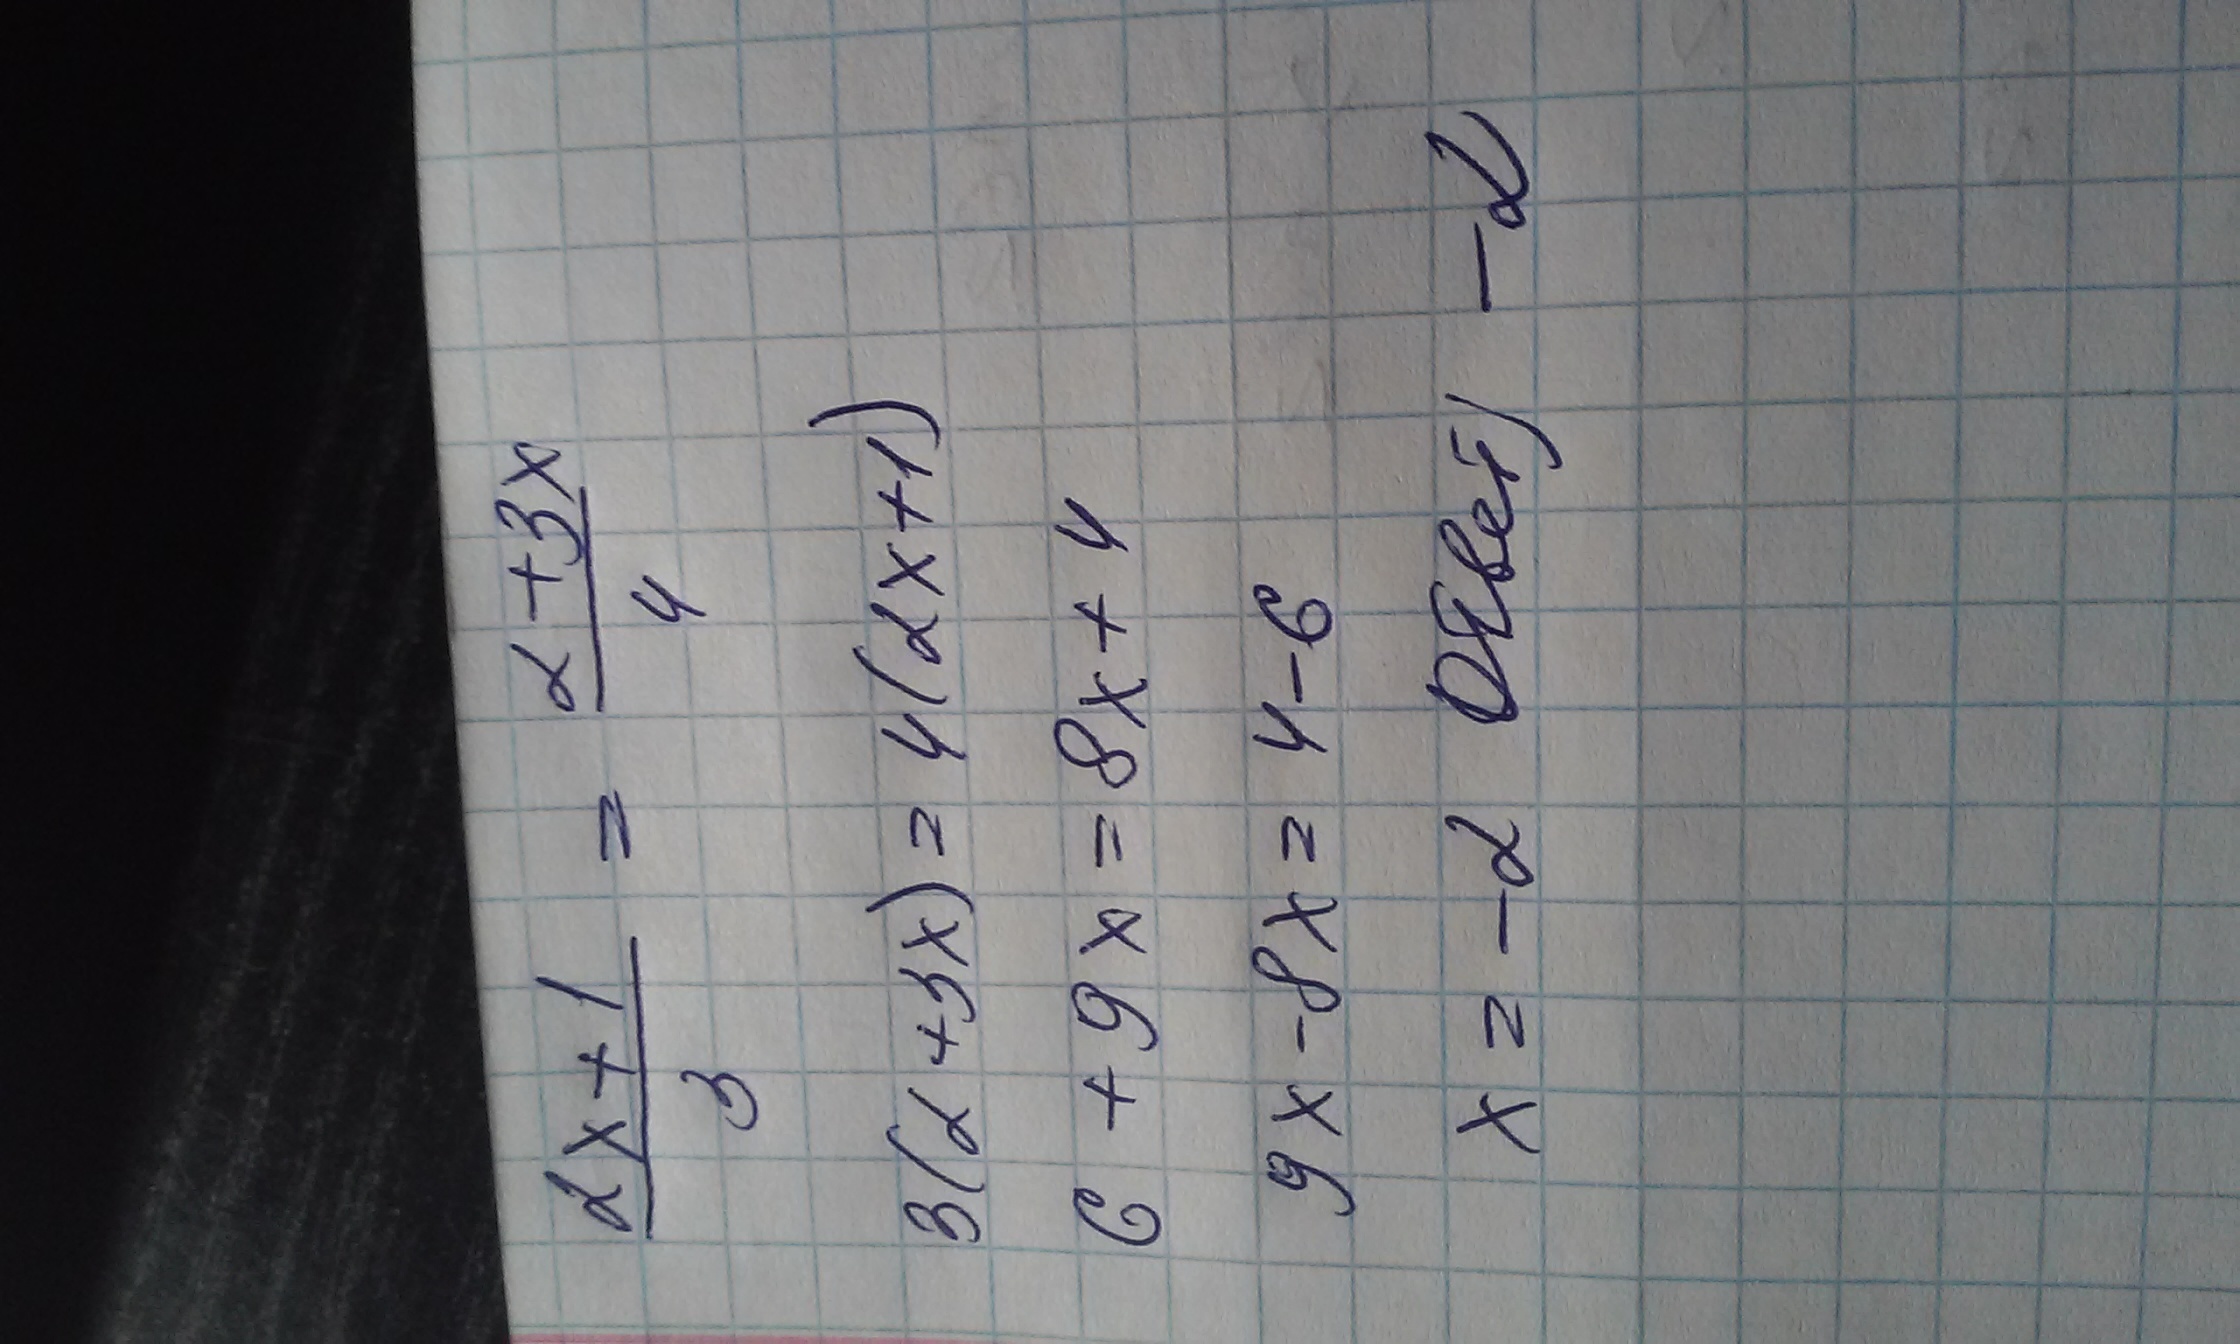 2x+1 = 2+3x
3 4
3(2+3x)=4(2x+1)
6+9x=8x+4
9x-8x=4-6
x=-2 Ответ) -2